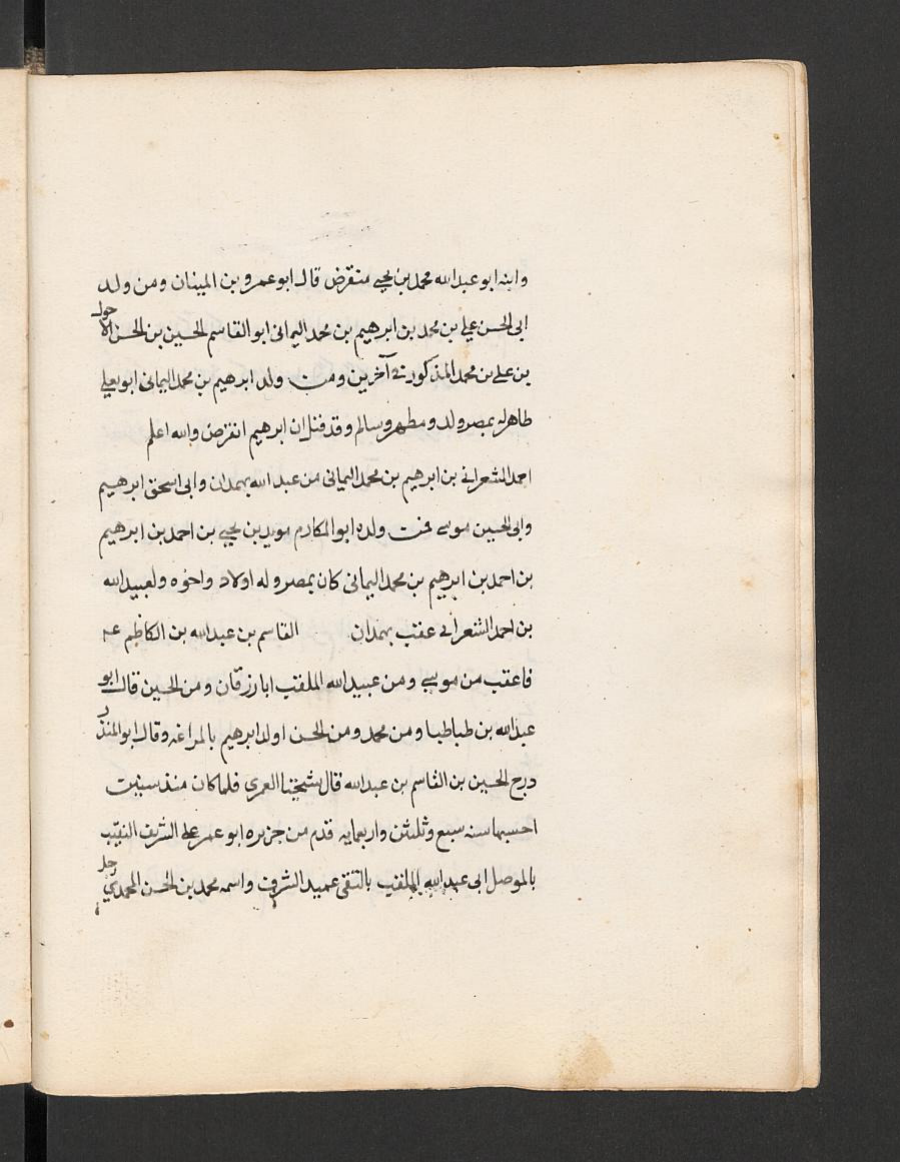 وابنه ابو عبد الله محمد بن يحيى منقرض قال ابو عمرو بن المينان ومن ولد
ابى الحسن على بن محمد بن ابرهيم بن محمد اليمانى ابو القاسم الحسين بن الحسن الاحول
بن على بن محمد المذكور فى آخرين ومن ولد ابرهيم بن محمد اليمانى ابو يعلى
طاهر له بمصر ولد ومطهر وسالم وقد قيل ان ابرهيم انقرض والله اعلم
احمد الشعرانى بن ابرهيم بن محمد اليمانى من عبد الله بهمدان وابى اسحق ابرهيم
وابى الحسين موسى فمن ولده ابو المكارم مويد بن يحيى بن احمد بن ابرهيم
بن احمد بن ابرهيم بن محمد اليمانى كان بمصر وله اولاد واخوه ولعبيد الله
بن احمد الشعرانى عقب بهمدان القاسم بن عبد الله بن الكاظم عم
فاعقب من موسى ومن عبيد الله الملقب ابا زرقان ومن الحسين قال ابو
عبد الله بن طباطبا ومن محمد ومن الحسن اولد ابرهيم بالمراغه وقال ابو المنذر
درج الحسين بن القاسم بن عبد الله قال شيخنا العمرى فلما كان منذ سنيات
احسبها سنه سبع وثلثين واربعمايه قدم من جزيره ابو عمر على الشريف النقيب
بالموصل ابى عبد الله الملقب بالتقى عميد الشرف واسمه محمد بن الحسن المحمدى رجل